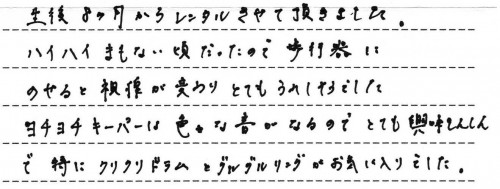 生後 8ヶ月からレンタルさせて頂きました。
ハイハイまもない頃だったので 歩行器に
のせると視線が変わり とてもうれしそうでした
ヨチヨチキーパーは 色々な音がなるので とても興味しんしん
で 特に クリクリドラム とグルグルリングがお気に入りでした。